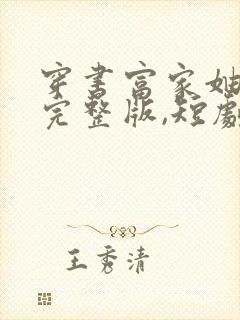 穿书富家
完整版,短劇
王秀清